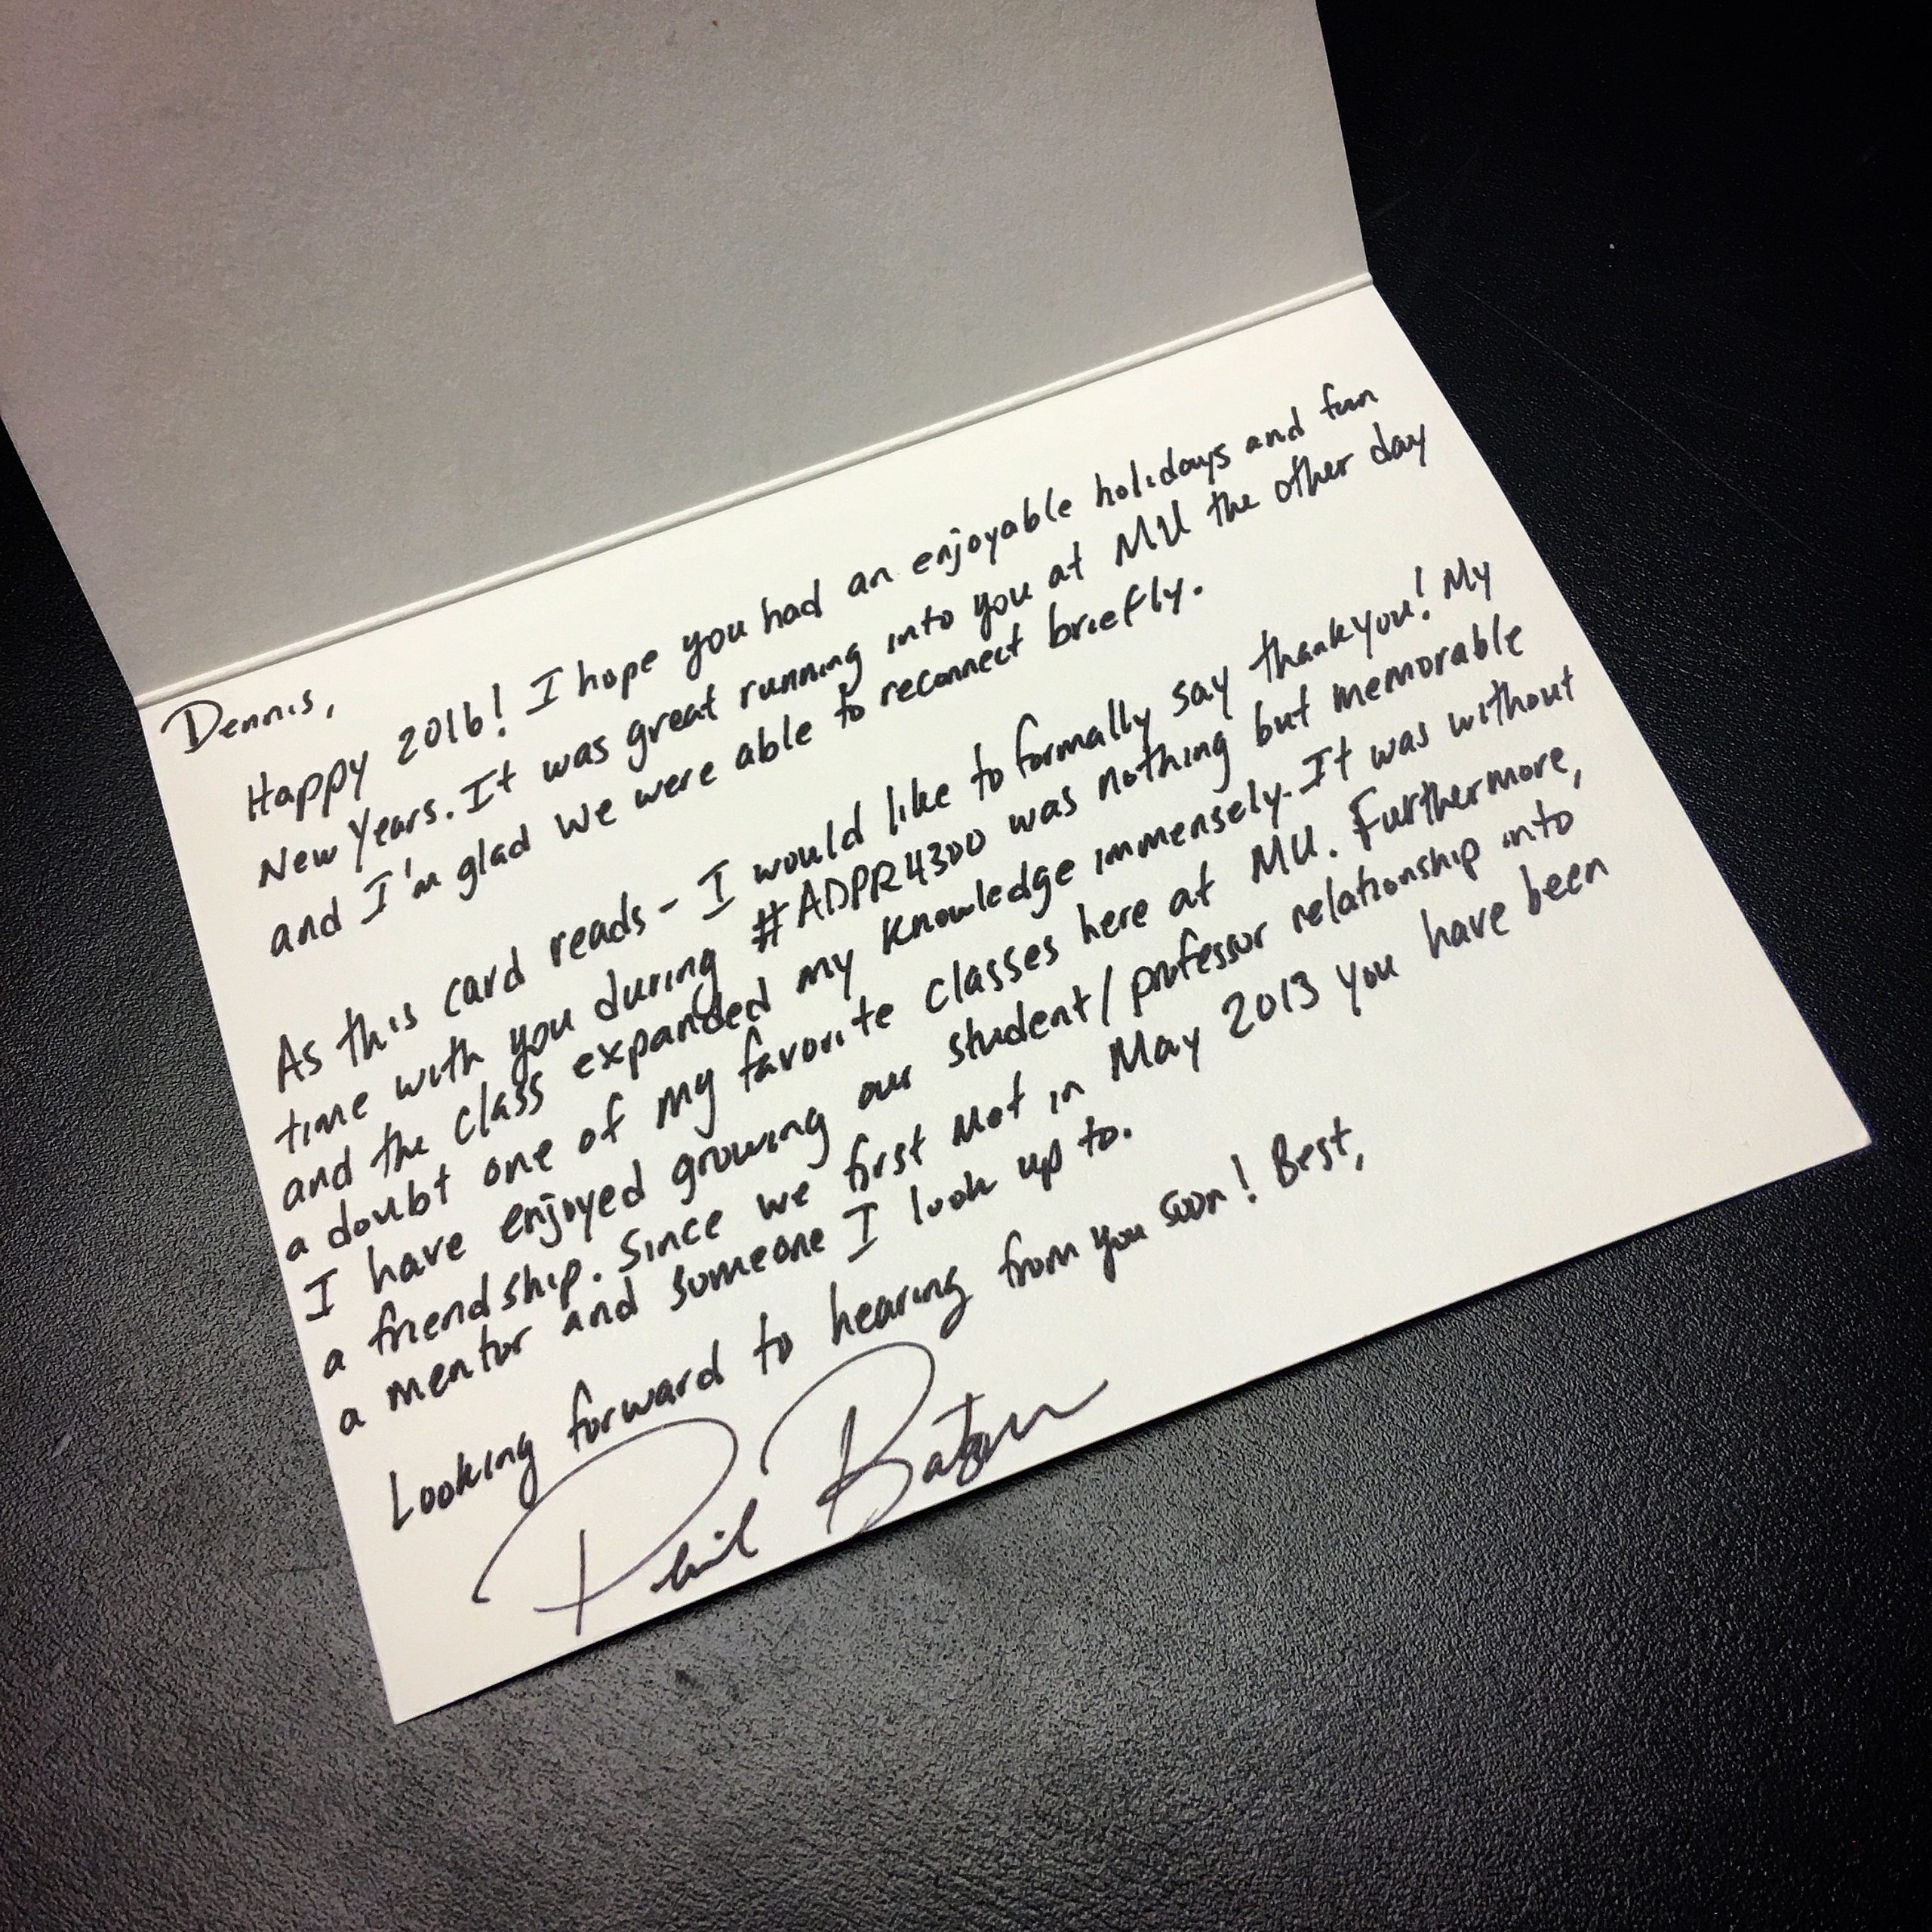 Dennis,
Happy 2016! I hope you had an enjoyable holidays and fun
New Years. It was great running into you at MU the other day
and I'm glad we were able to reconnect briefly.
As this card reads - I would like to formally say thank you! My
time with you during #ADPR4300 was nothing but memorable
and the class expanded my knowledge immensely. It was without
a doubt one of my favorite classes here at MU. Furthermore,
I have enjoyed growing our student/professor relationship into
a friendship. Since we first met in May 2013 you have been
a mentor and someone I look up to.
Looking forward to hearing from you soon! Best,
Phil